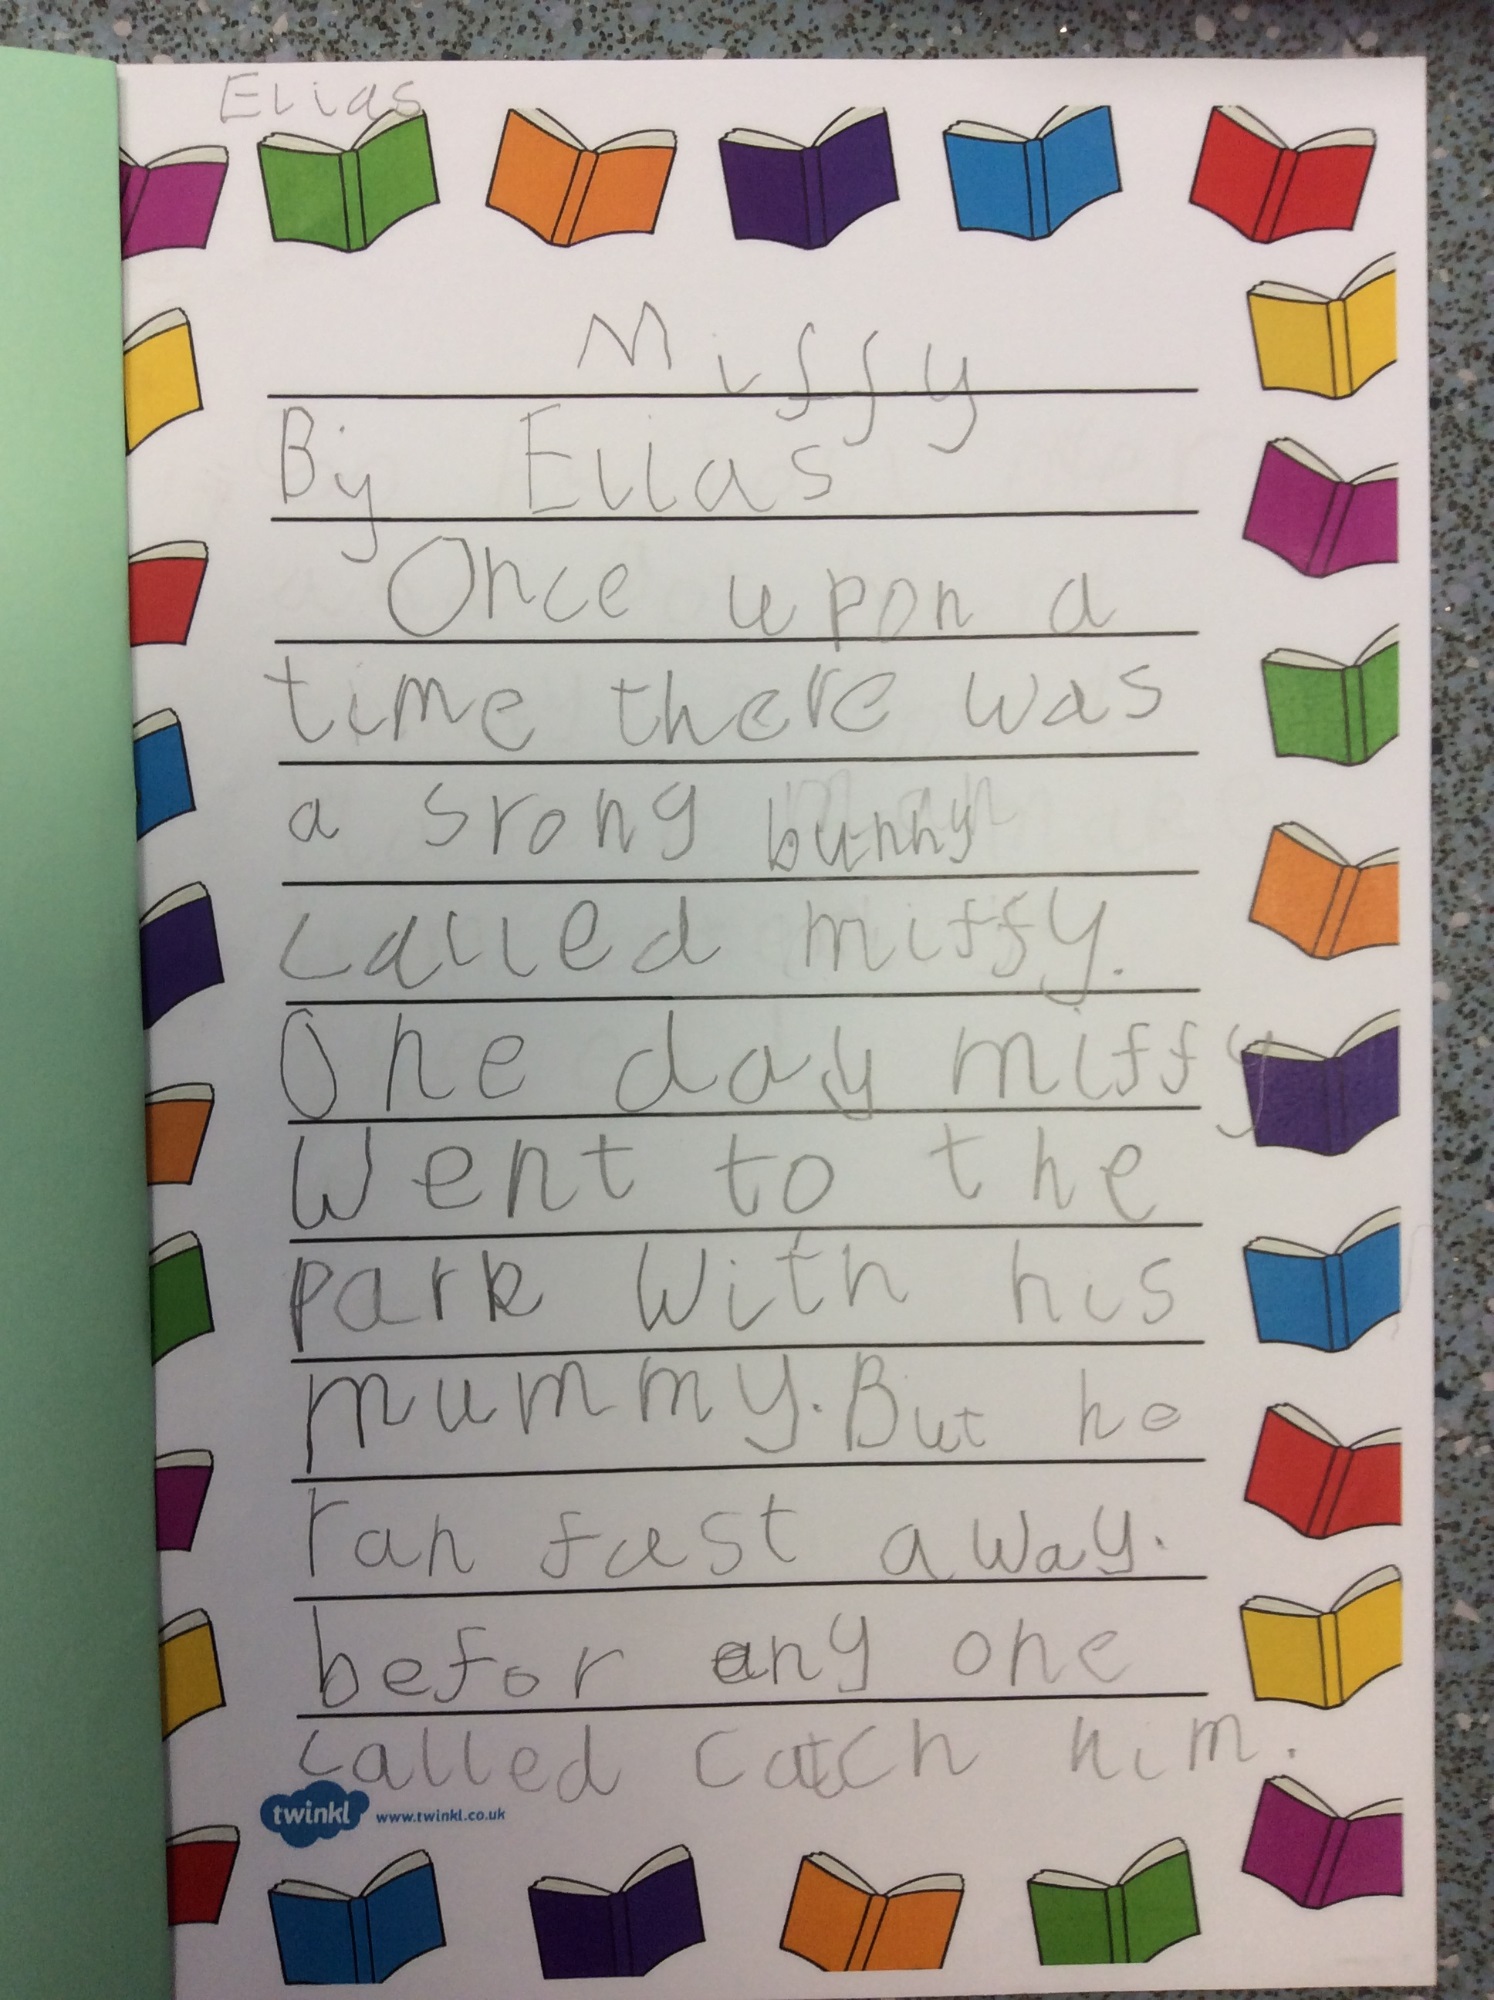 Elias
Miffy
By Elias
Once upon a
time there was
a srong bunny
called miffy.
One day miffy
Went to the
park With his
mummy. But he
ran fast away.
befor any one
called catch him.
twinkl www.twinkl.co.uk